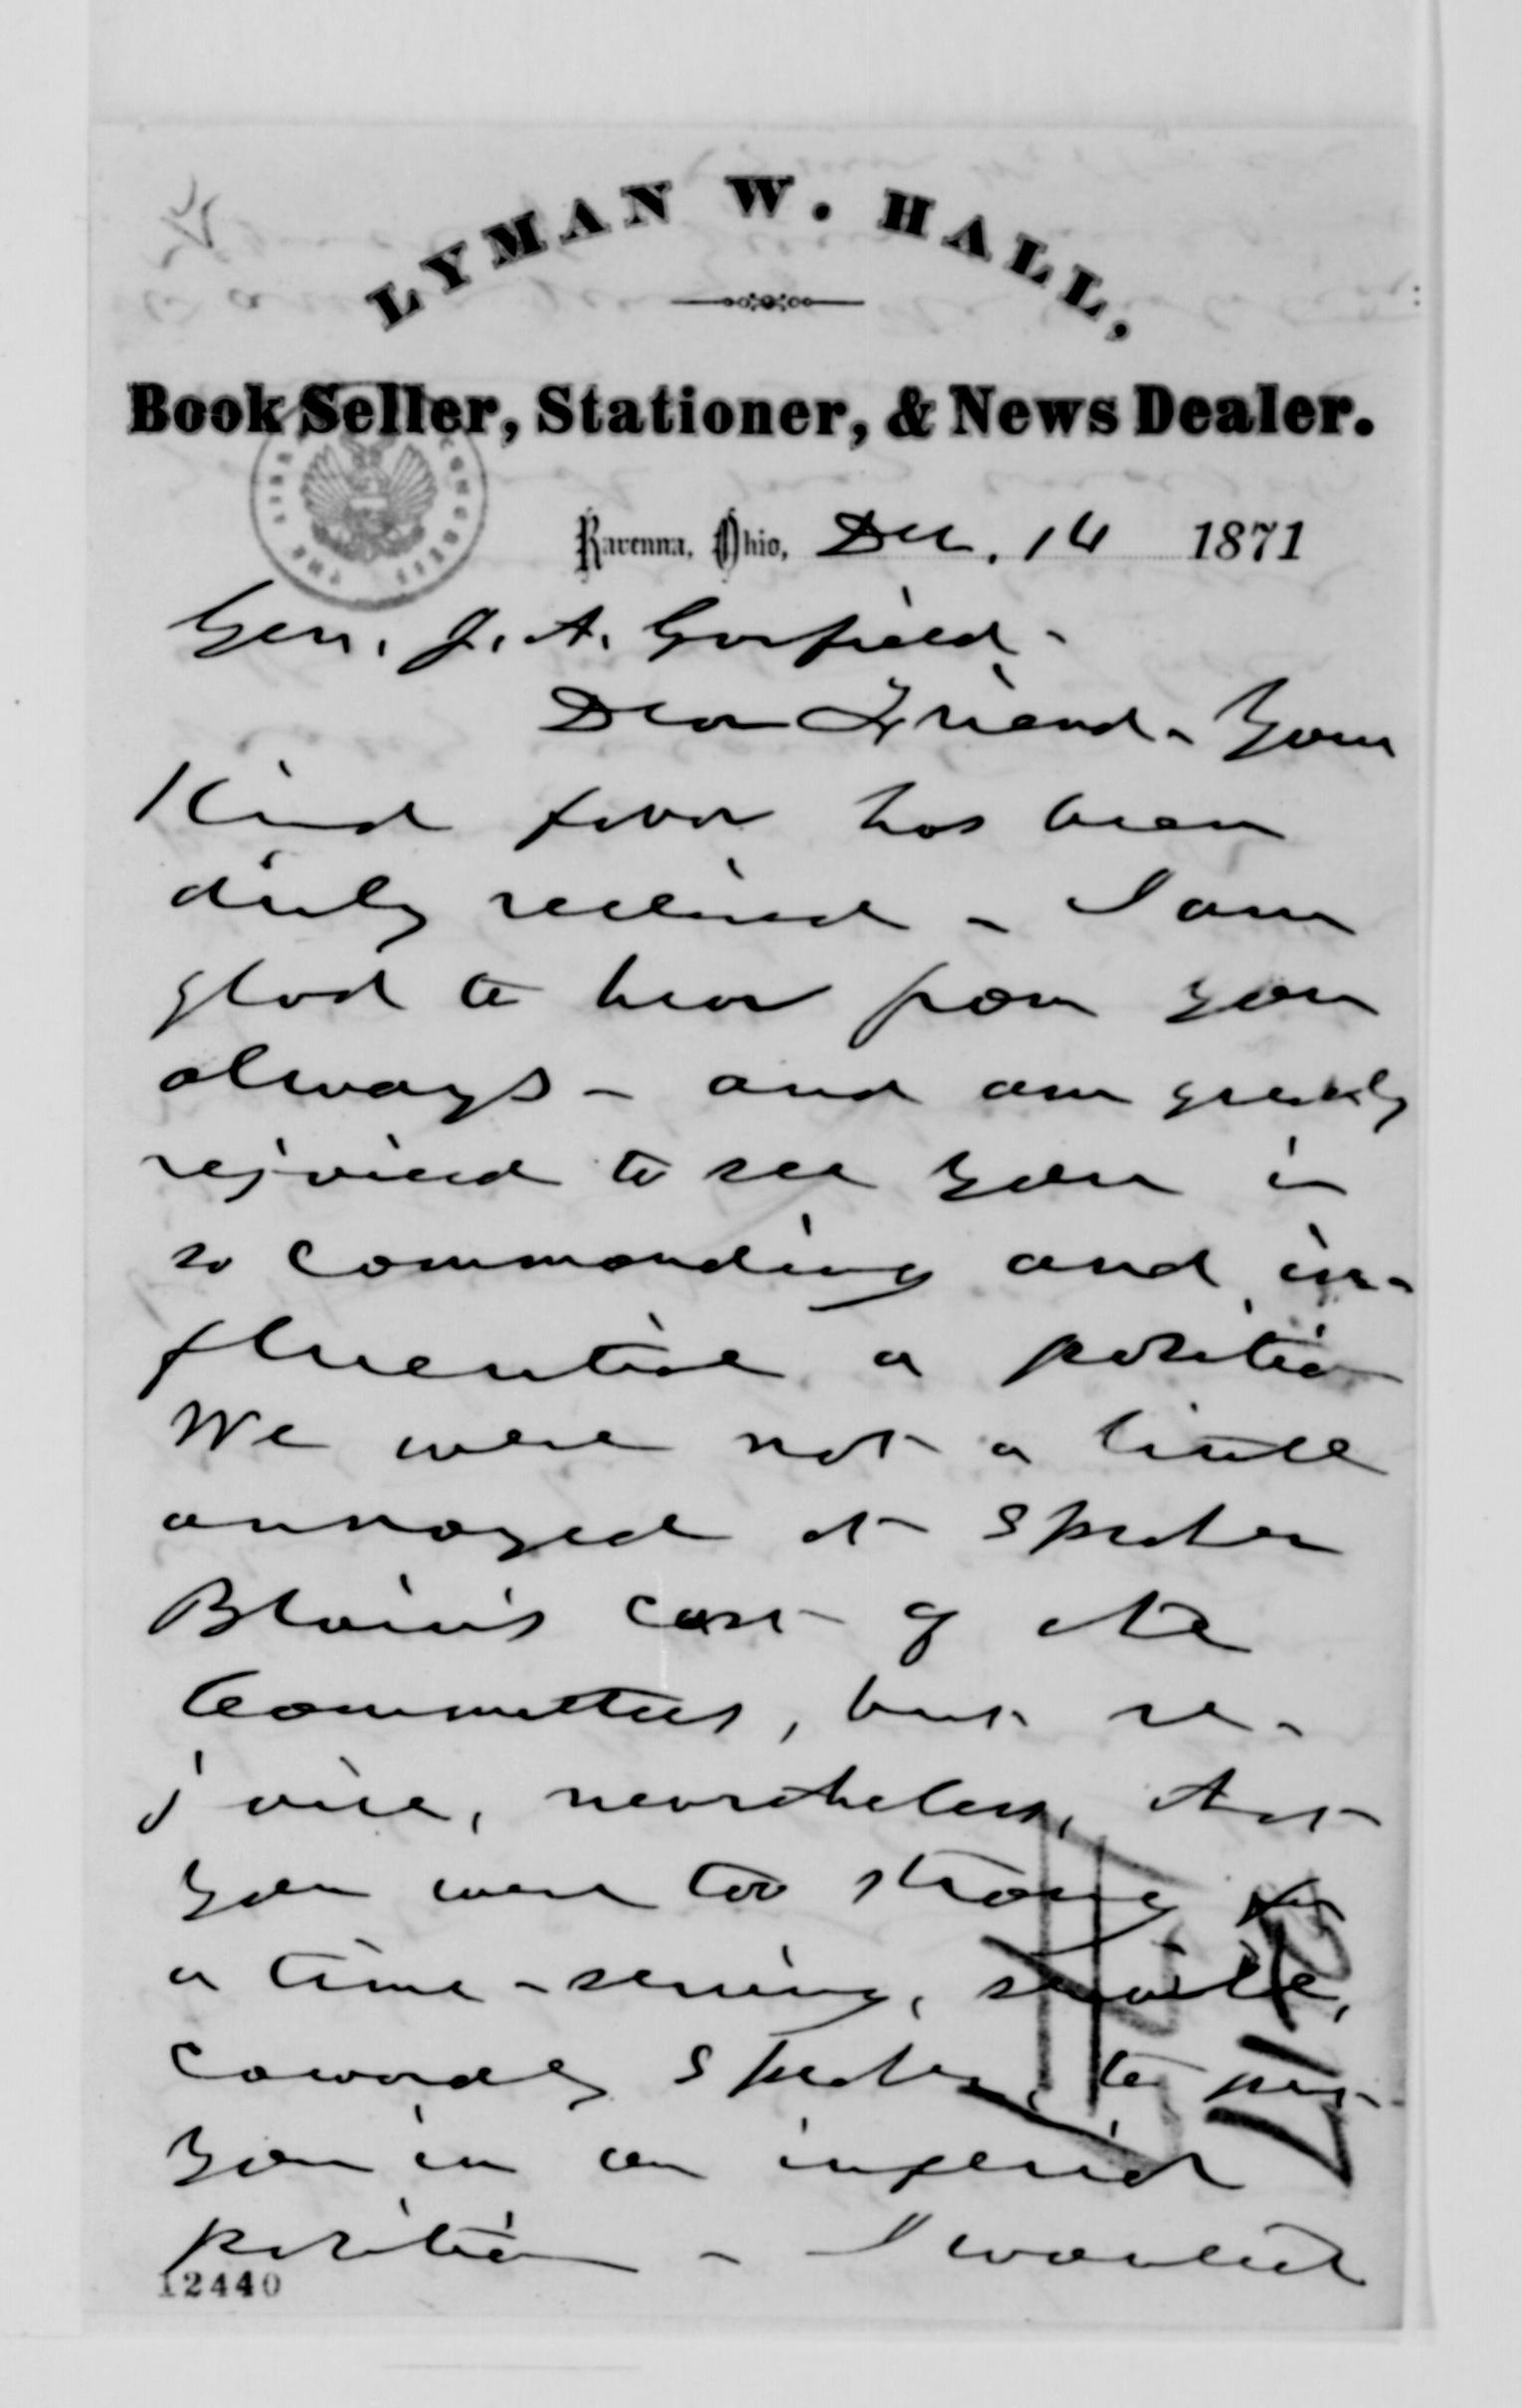 LYMAN W. HALL,
Book Seller, Stationer, & News Dealer.
Ravenna, Ohio, Dec. 14 1871
Gen. J. A. Garfield -
Dear Friend - Your
Kind favor has been
duly received - I am
glad to hear from you
always - and am greatly
rejoiced to see you in
so commanding and in-
fluential a position
We were not a little
annoyed at Speaker
Blaine's cast of the
Committees, but re-
joice, nevertheless, that
you were too strong for
a time-serving, servile,
cowardly Speaker, to put
you in an inferior
position - I would
12440